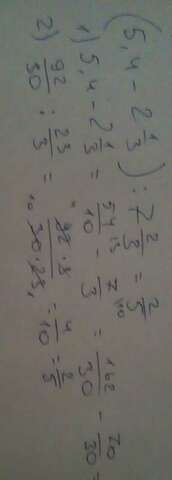 (5,4 - 2 1/3) : 7 2/3 = 2/5
1) 5,4 - 2 1/3 = 54/10 - 7/3 = 162/30 - 70/30 =
2) 92/30 : 23/3 = 92·3/30·23 = 4/10 = 2/5